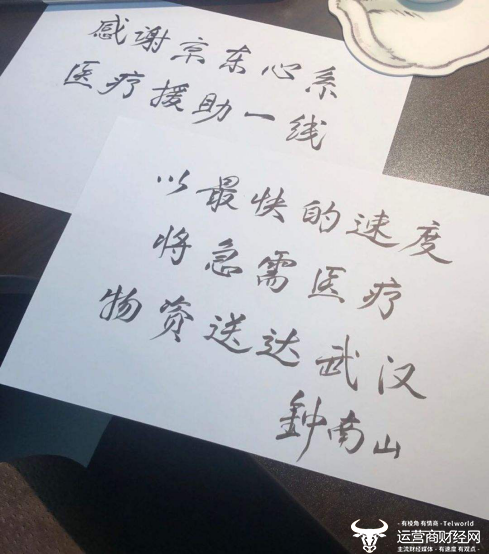 感谢京东心系
医疗援助一线
以最快的速度
将急需医疗
物资送达武汉
鈡南山
·有棱角 有情商· Telworld
运营商财经网
主流财经媒体·有速度 有观点